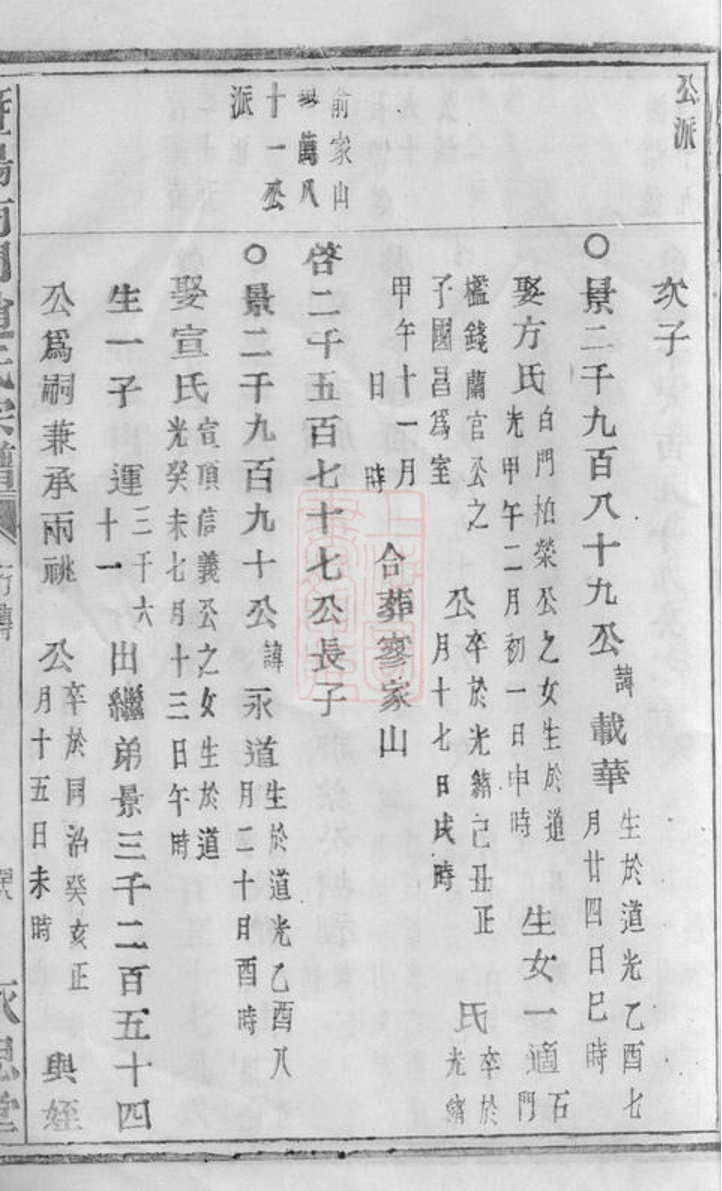 公派
次子
○景二千九百八十九公諱載華生於道光乙酉七月廿四日巳時
娶方氏白門柏榮公之女生於道光甲午二月初一日申時生女一適石門
檻錢蘭官公之子國昌為室公卒於光緒己丑正月十七日戌時氏卒於光緒
甲午十一月日時合葬寥家山
俞家山
萬八
十一公
派
啓二千五百七十七公長子
○景二千九百九十公諱永道生於道光乙酉八月二十日酉時
娶宣氏宣頂信義公之女生於道光癸未七月十三日午時
生一子運三千六十一出繼弟景三千二百五十四
公爲嗣兼承兩祧公卒於同治癸亥正月十五日未時與姪
暨陽南門趙氏宗譜
行傳
永思堂